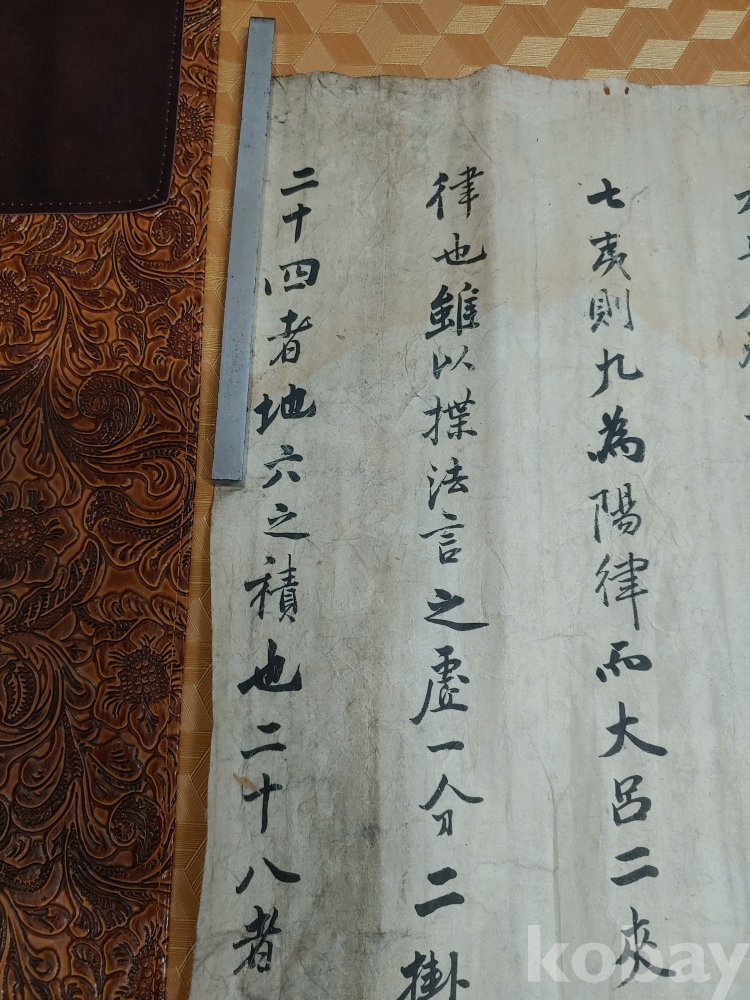 七夷則九為陽律而大呂二夾
律也雖以揲法言之虛一分二掛
二十四者地六之積也二十八者
kobay